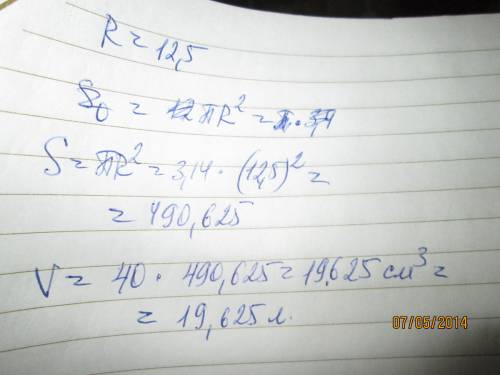 R = 12,5
S = πR² = 3,14 · (12,5)² =
= 490,625
V = 40 · 490,625 = 19625 см³ =
= 19,625 л.
07/05/2014